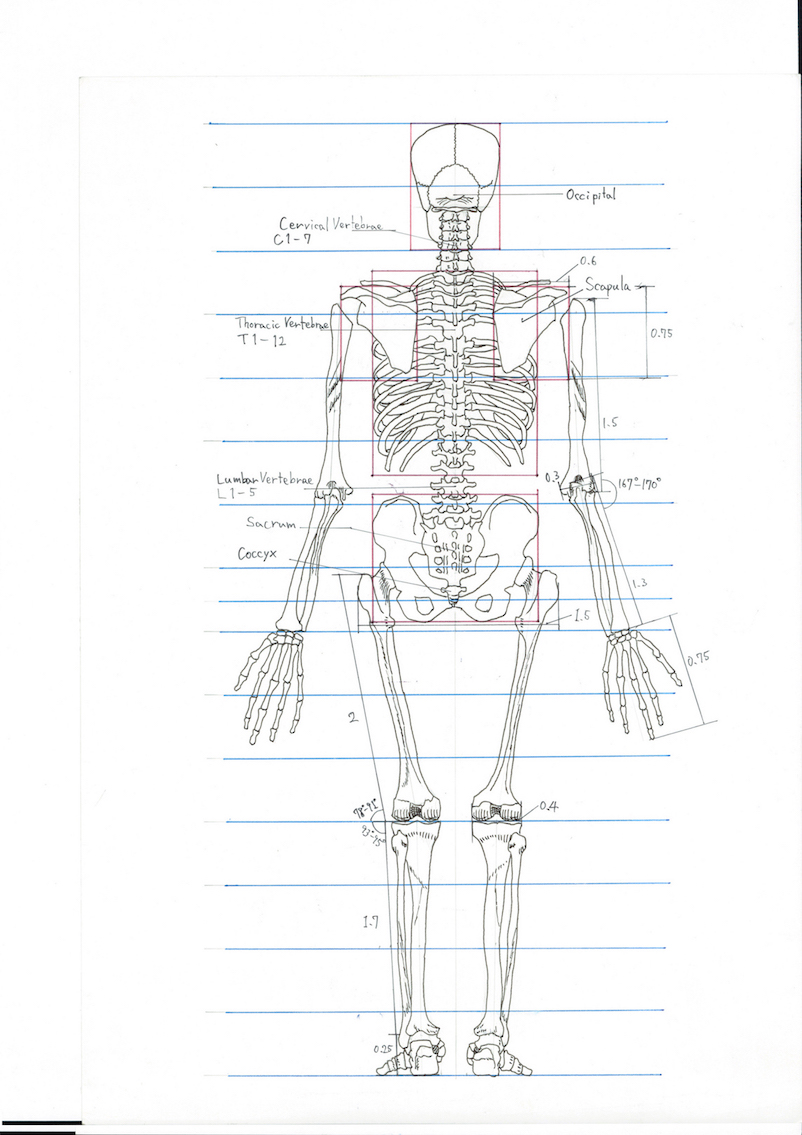 Occipital
Cervical Vertebrae
C1-7
0.6
Scapula
Thoracic Vertebrae
T1-12
0.75
1.5
Lumbar Vertebrae
L1-5
0.3
167°-170°
Sacrum
Coccyx
1.3
1.5
0.75
2
0.4
1.7
0.25